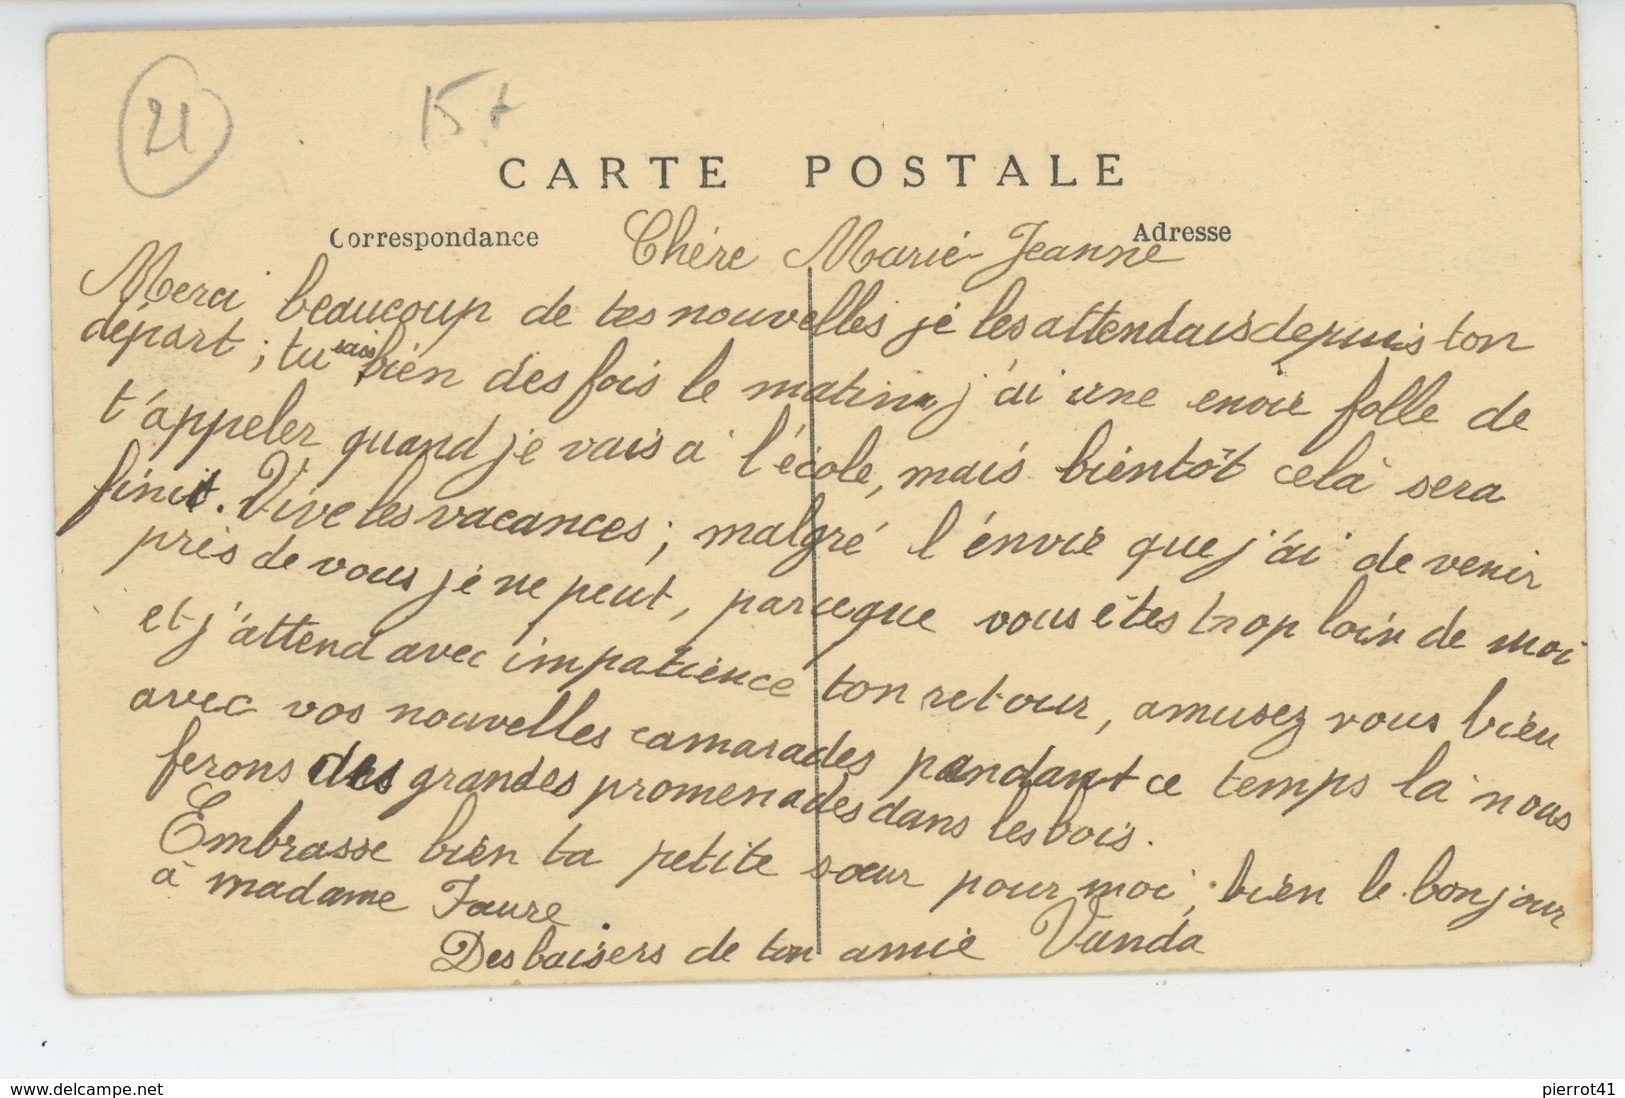 21
15+
CARTE POSTALE
Correspondance
Adresse
Chére Marie-Jeanne
Merci beaucoup de tes nouvelles je les attendais depuis ton
départ; tu sais bien des fois le matin j'ai une envie folle de
t'appeler quand je vais a l'école, mais bientôt celà sera
finit. Vive les vacances; malgré l'envie que j'ai de venir
près de vous je ne peut, parceque vous êtes trop loin de moi
et j'attend avec impatience ton retour, amusez vous bien
avec vos nouvelles camarades pendant ce temps là nous
ferons des grandes promenades dans les bois.
Embrasse bien ta petite sœur pour moi, bien le bonjour
à madame Faure.
Des baisers de ton amie Vanda
www.delcampe.net
pierrot41